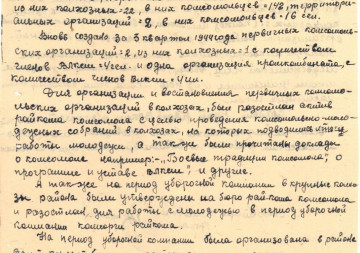 из них колхозных=22, в них комсомольцев=142, территори-
альных организаций=2, в них комсомольцев=16 чел.
Вновь создано за 3 квартал 1944 года первичных комсомоль-
ских организаций=2, из них колхозных=1 с количеством
членов ВЛКСМ=4 чел. и одна организация промкомбината, с
количеством членов ВЛКСМ=4 чел.
Для организации и востановления первичных комсомо-
льских организаций в колхозах, был разослан актив
райкома комсомола с целью проведения комсомольско-моло-
дежных собраний в колхозах, на которых подводились итоги
работы молодежи, а также были прочитаны доклады
о комсомоле например:- „Боевые традиции комсомола"; о
программе и уставе ВЛКСМ" и другие.
А также на период уборочной компании в крупные колхо-
зы района были утверждены на бюро райкома комсомола
и разосланы для работы с молодежью в период уборочной
компании комсорги райкома.
На период уборочной компании была организована в районе